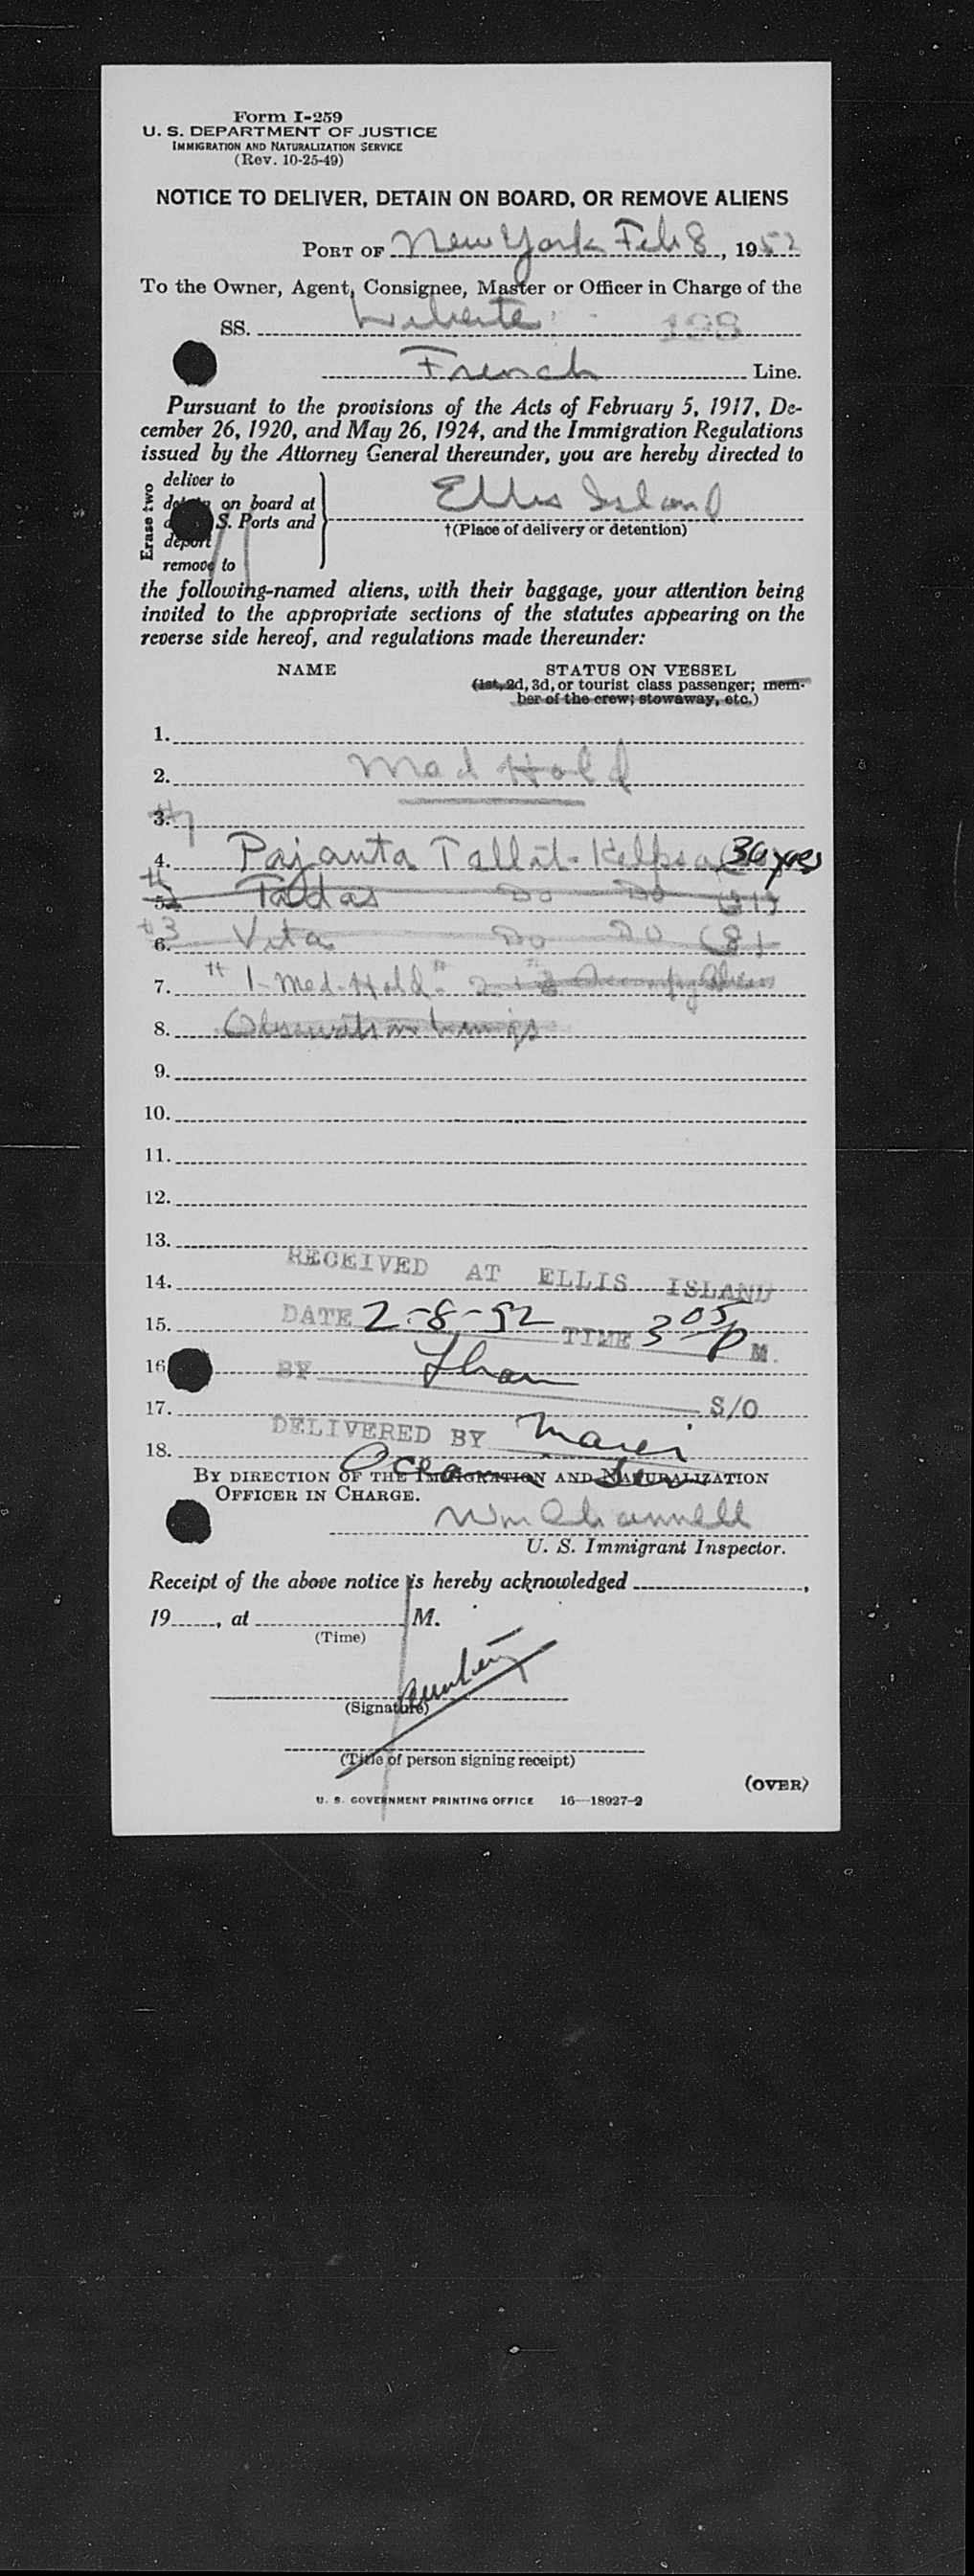 Form I-259
U. S. DEPARTMENT OF JUSTICE
IMMIGRATION AND NATURALIZATION SERVICE
(Rev. 10-25-49)
NOTICE TO DELIVER, DETAIN ON BOARD, OR REMOVE ALIENS
PORT OF New York Feb 8, 1952
To the Owner, Agent, Consignee, Master or Officer in Charge of the
SS. Liberte
French Line.
Pursuant to the provisions of the Acts of February 5, 1917, De-
cember 26, 1920, and May 26, 1924, and the Immigration Regulations
issued by the Attorney General thereunder, you are hereby directed to
Erase two
deliver to
on board at
S. Ports and
deport
remove to
Ellis Island
†(Place of delivery or detention)
the following-named aliens, with their baggage, your attention being
invited to the appropriate sections of the statutes appearing on the
reverse side hereof, and regulations made thereunder:
NAME STATUS ON VESSEL
(1st, 2d, 3d, or tourist class passenger; mem-
ber of the crew; stowaway, etc.)
1.
2. Med Hold
3.
4. Pajauta Tallat-Kelpsa 36 yrs
5. Taldas Do Do
6. Vita Do Do (8)
7. "1-Med-Hold"
8. Observation lungs
9.
10.
11.
12.
13.
RECEIVED AT ELLIS ISLAND
14.
15. DATE 2-8-52 TIME 3 05 P M.
16 BY
17. S/O
DELIVERED BY
18.
BY DIRECTION OF THE IMMIGRATION AND NATURALIZATION
OFFICER IN CHARGE.
Wm Channell
U. S. Immigrant Inspector.
Receipt of the above notice is hereby acknowledged ,
19 , at M.
(Time)
(Signature)
(Title of person signing receipt)
(OVER)
U. S. GOVERNMENT PRINTING OFFICE 16—18927-2